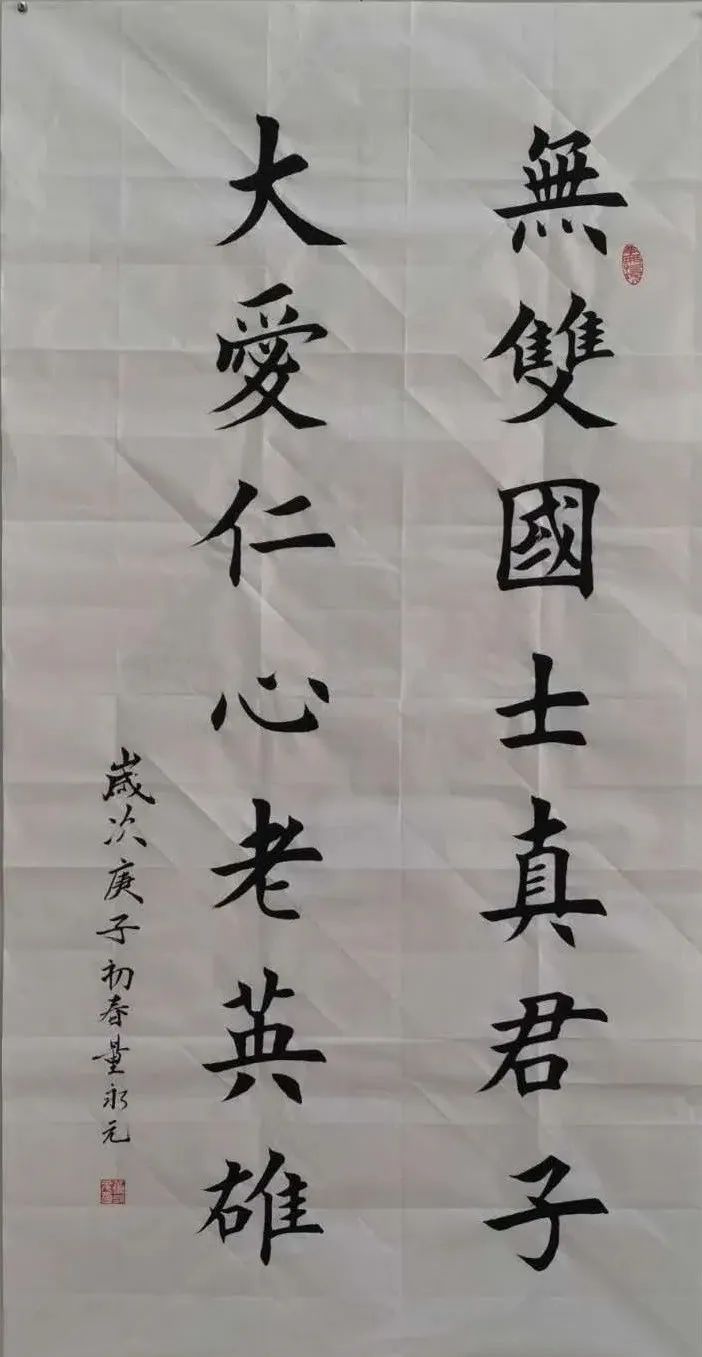 無雙國士真君子
大愛仁心老英雄
歲次庚子初春量永元